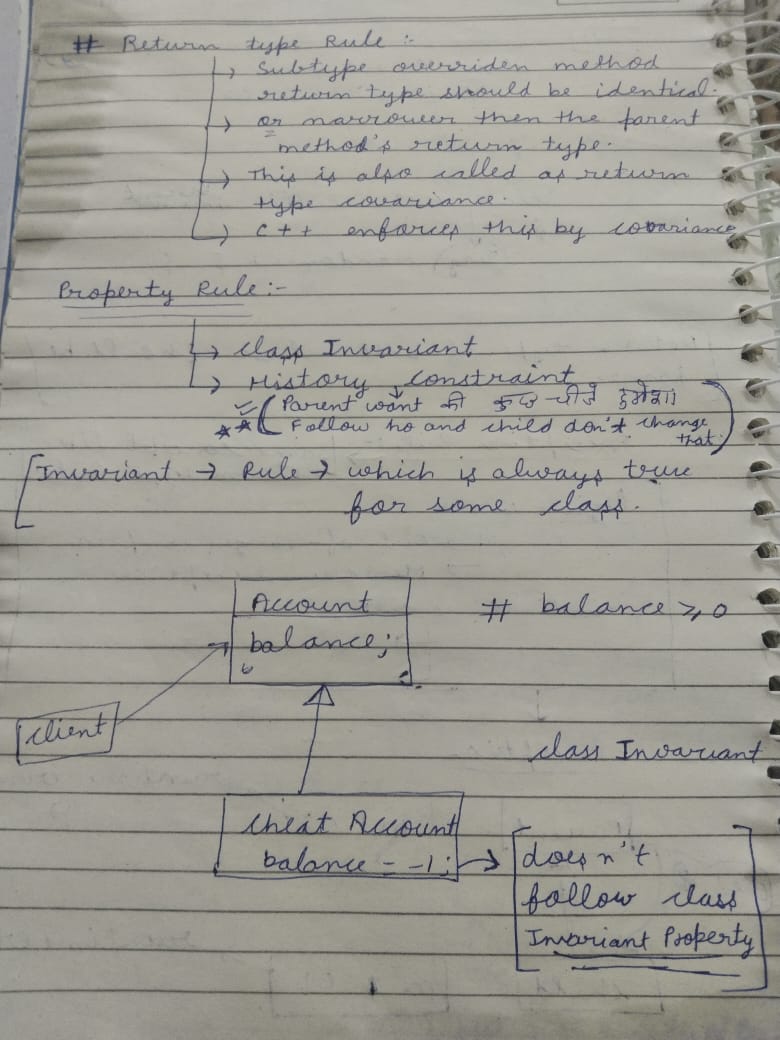 # Return type Rule :-
↳ Subtype overriden method
return type should be identical.
→ or narrower then the parent
method's return type.
→ This is also called as return
type covariance.
↳ C++ enforces this by covariance
Property Rule:-
↳ Class Invariant
↳ History constraint
(Parent want की कुछ चीजें हमेशा
** Follow ho and child don't change
that)
[Invariant → Rule → which is always true
for some class.
Account
# balance ≥ 0
balance;
client
class Invariant
Cheat Account
balance = -1;
→ [doesn't
follow class
Invariant Property]